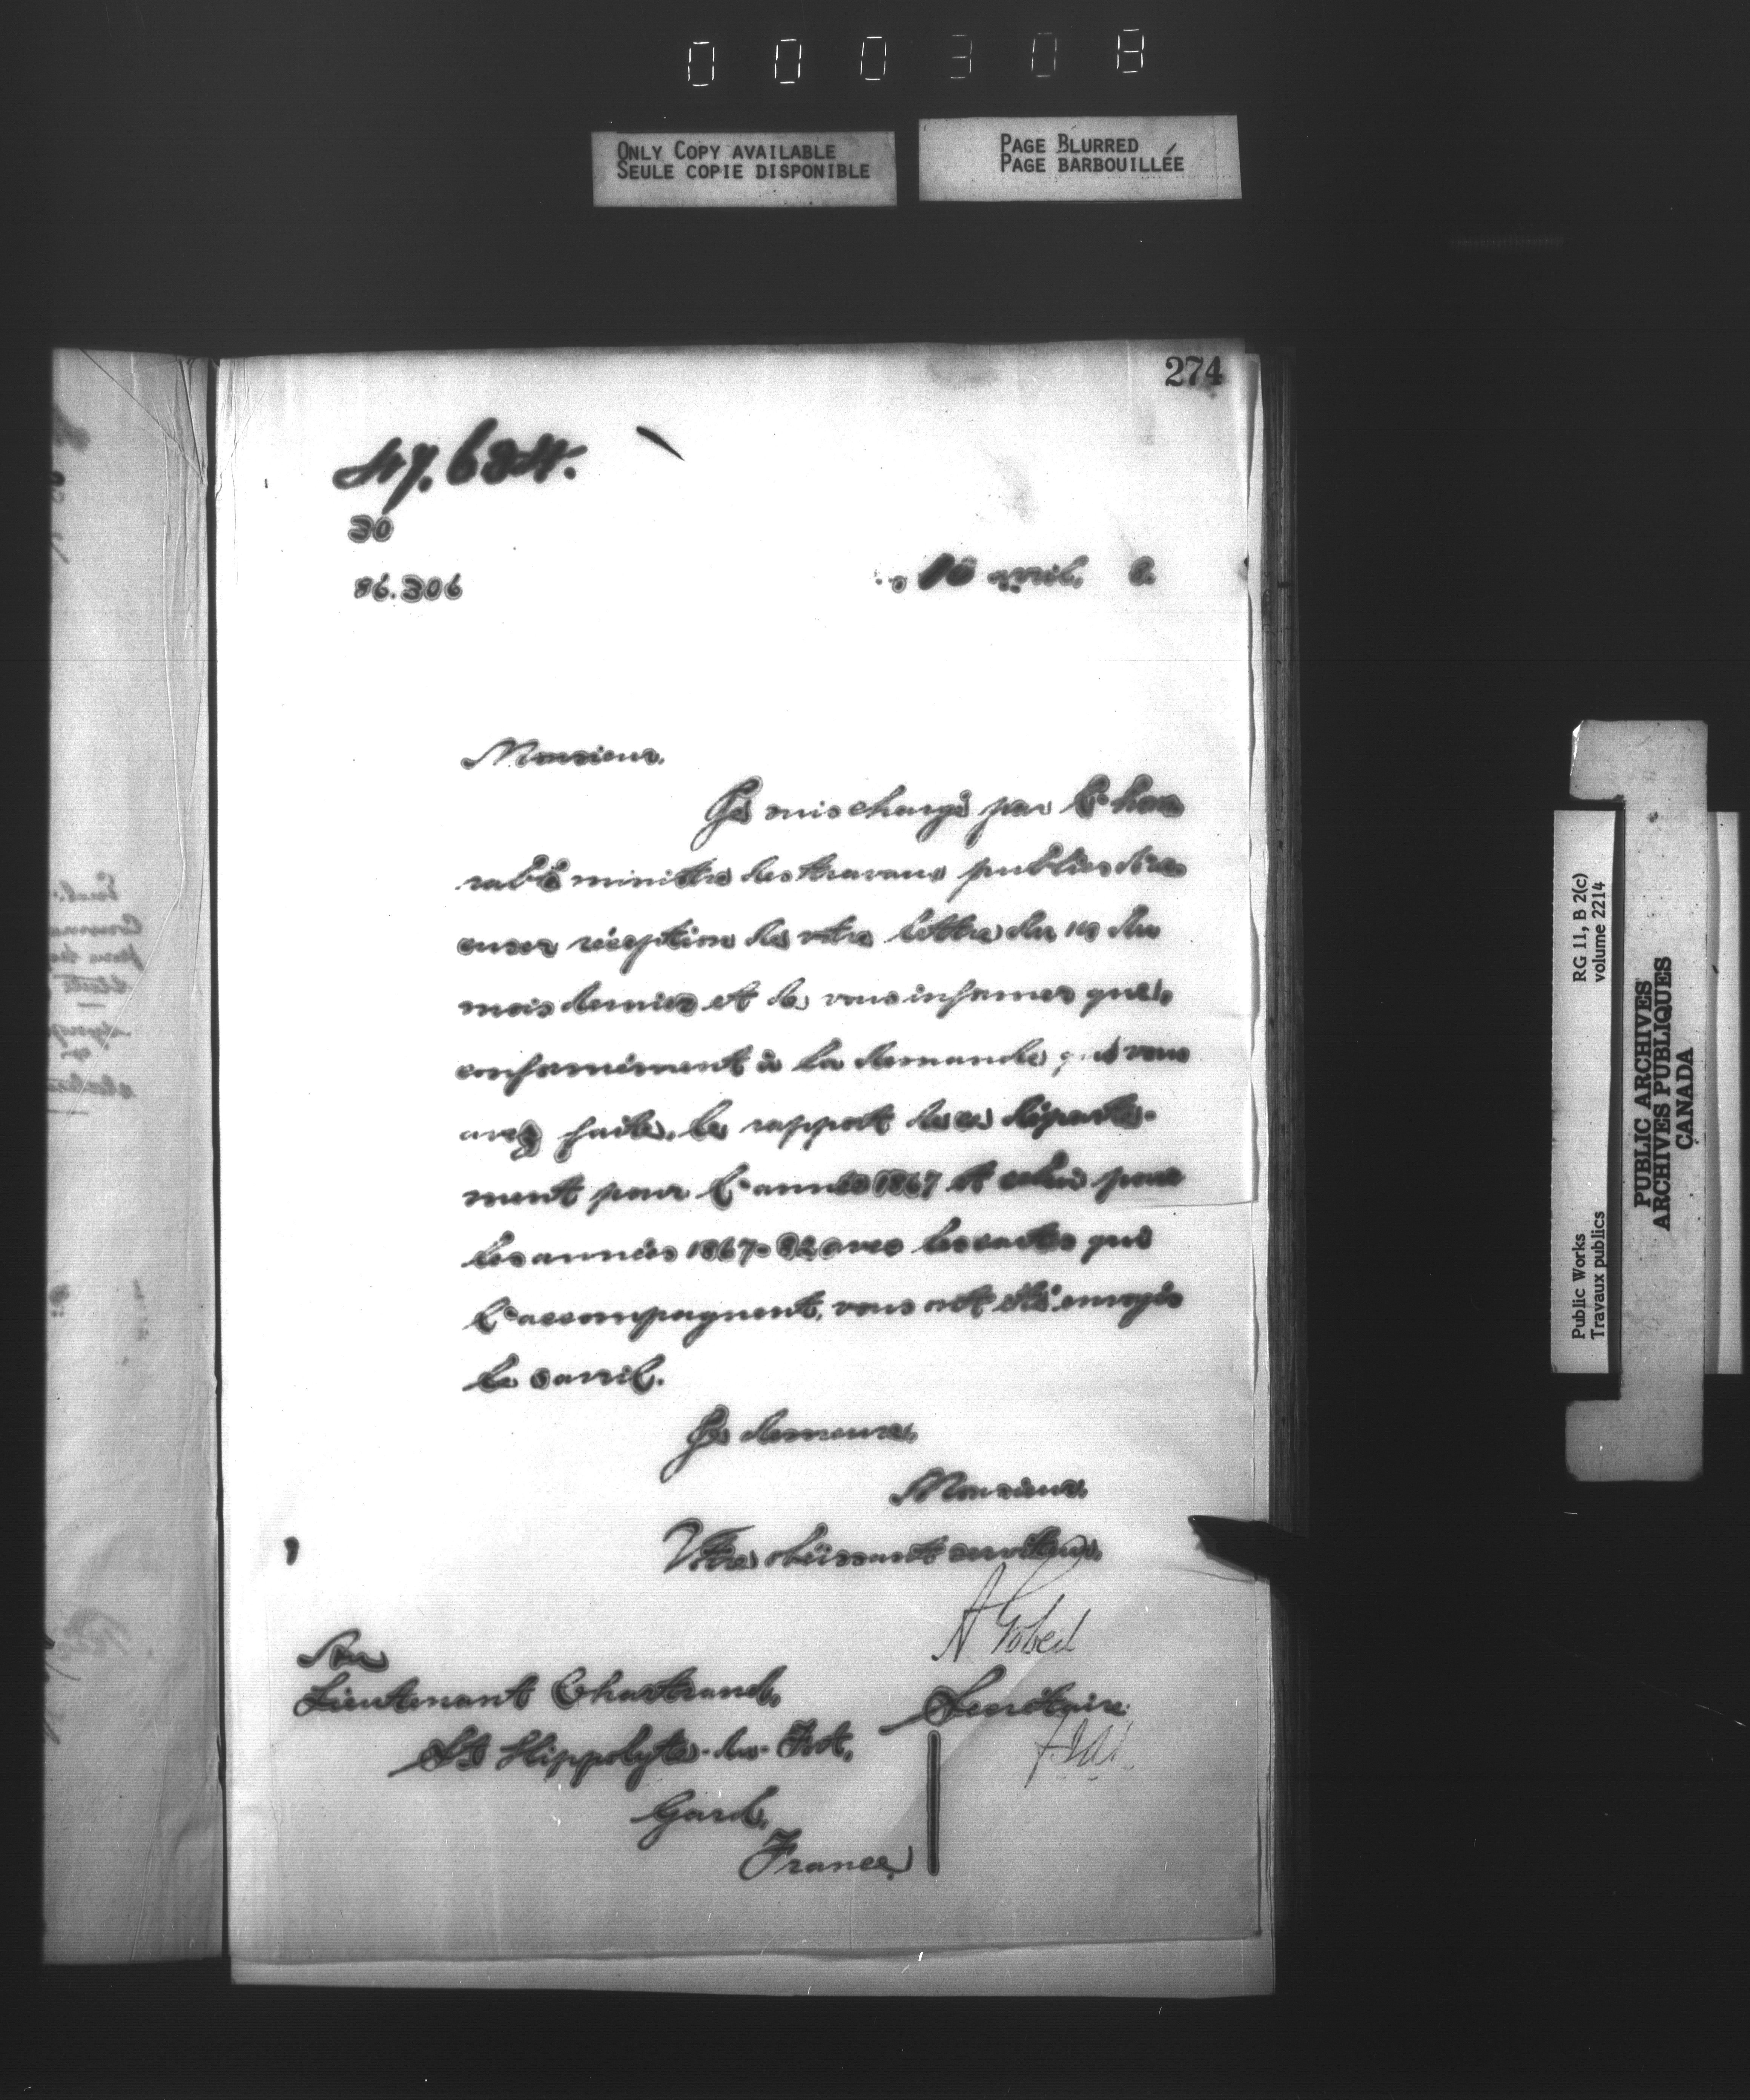 000308
ONLY COPY AVAILABLE
SEULE COPIE DISPONIBLE
PAGE BLURRED
PAGE BARBOUILLÉE
274
47.684.
30
86.306
10 avril, 8.
Monsieur,
Je suis chargé par l'hono
rable ministre des travaux publics d'ac
cuser réception de votre lettre du 14 du
mois dernier et de vous informer que,
conformément à la demande que vous
avez faite, le rapport de ce départe-
ment pour l'année 1867 et celui pour
les années 1867-82 avec les cartes qui
l'accompagnent, vous ont été envoyés
le 5 avril.
Je demeure,
Monsieur,
Votre obéissant serviteur,
A Gobeil
Secrétaire
Au
Lieutenant Chartrand,
St Hippolyte-du-Fort,
Gard,
France.
Public Works
Travaux publics
RG 11, B 2(c)
volume 2214
PUBLIC ARCHIVES
ARCHIVES PUBLIQUES
CANADA